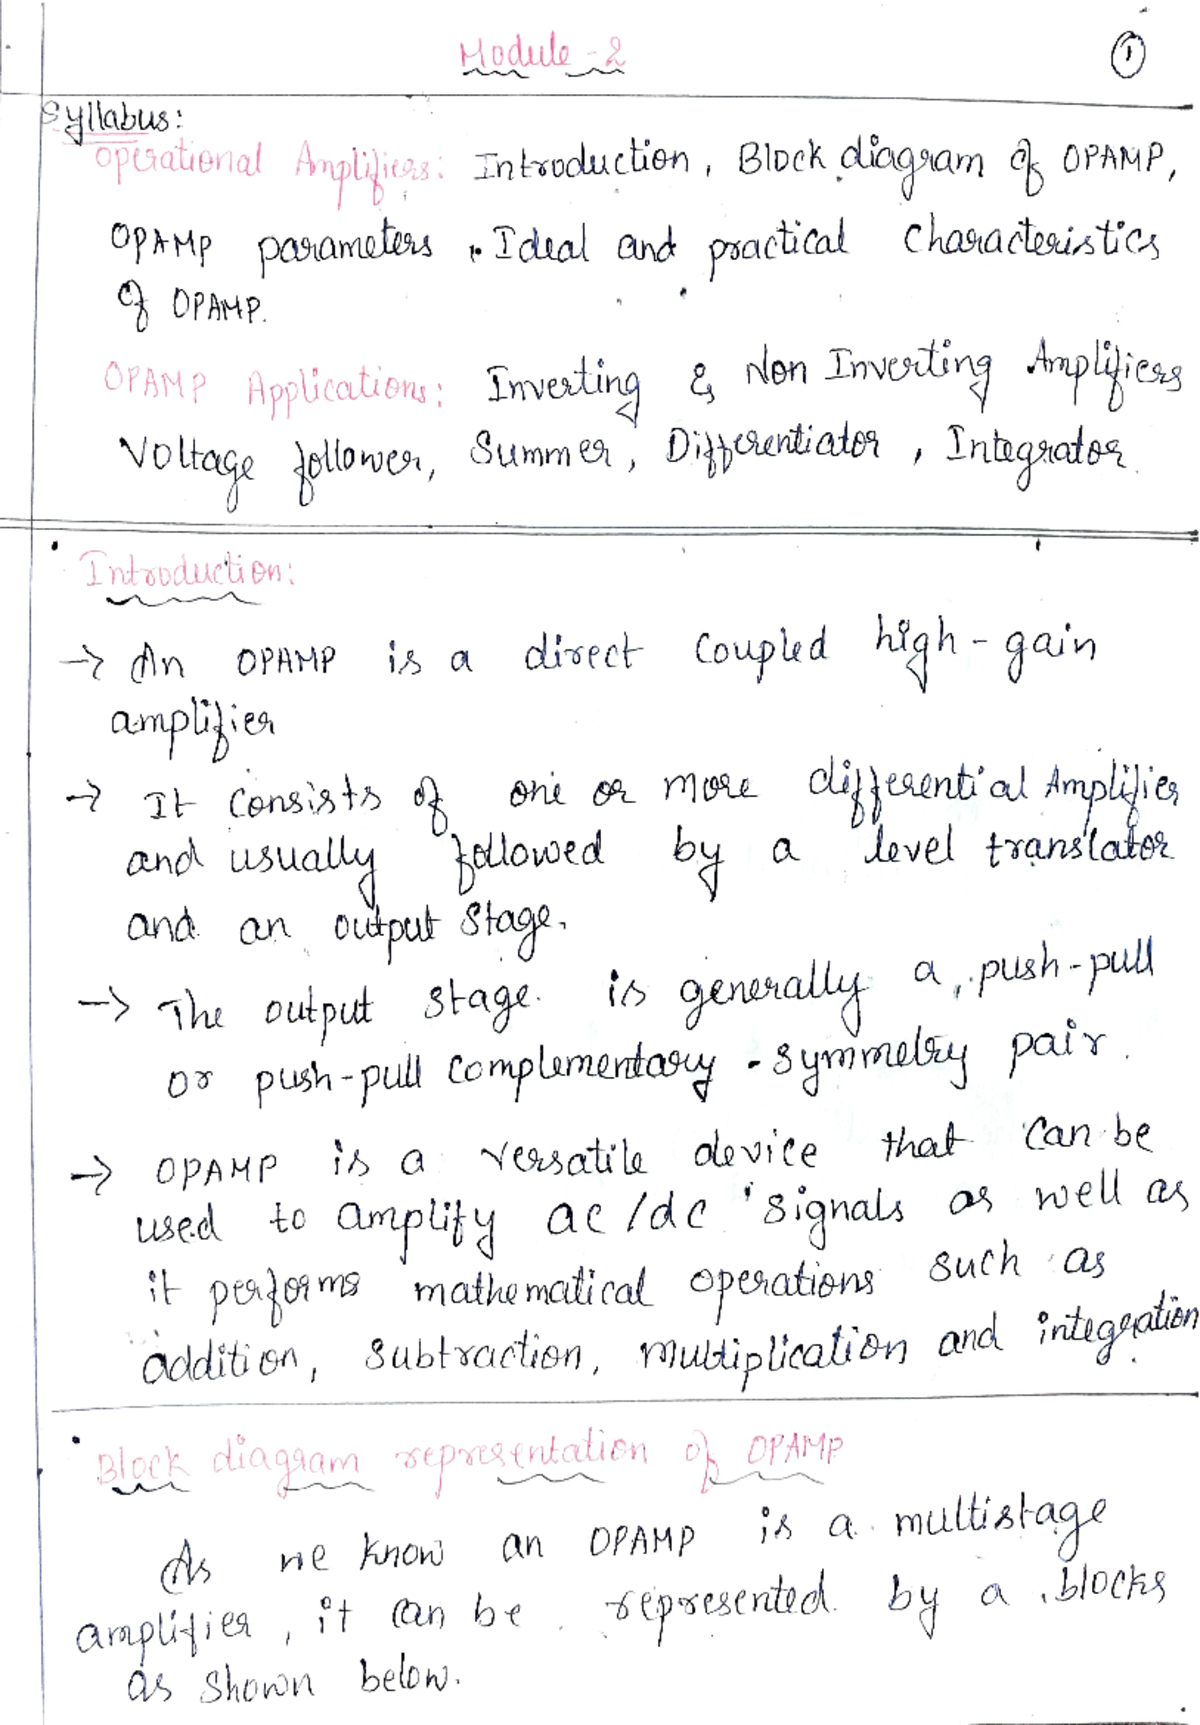 Module-2
1
Syllabus:
Operational Amplifiers: Introduction, Block diagram of OPAMP,
OPAMP parameters, Ideal and practical Characteristics
of OPAMP.
OPAMP Applications: Inverting & Non Inverting Amplifiers
Voltage follower, Summer, Differentiator, Integrator.
Introduction:
→ An OPAMP is a direct coupled high-gain
amplifier
→ It consists of one or more differential Amplifier
and usually followed by a level translator
and an output stage.
→ The output stage is generally a push-pull
or push-pull complementary-symmetry pair.
→ OPAMP is a versatile device that can be
used to amplify ac/dc signals as well as
it performs mathematical operations such as
addition, subtraction, multiplication and integration
Block diagram representation of OPAMP
As we know an OPAMP is a multistage
amplifier, it can be represented by a blocks
as shown below.